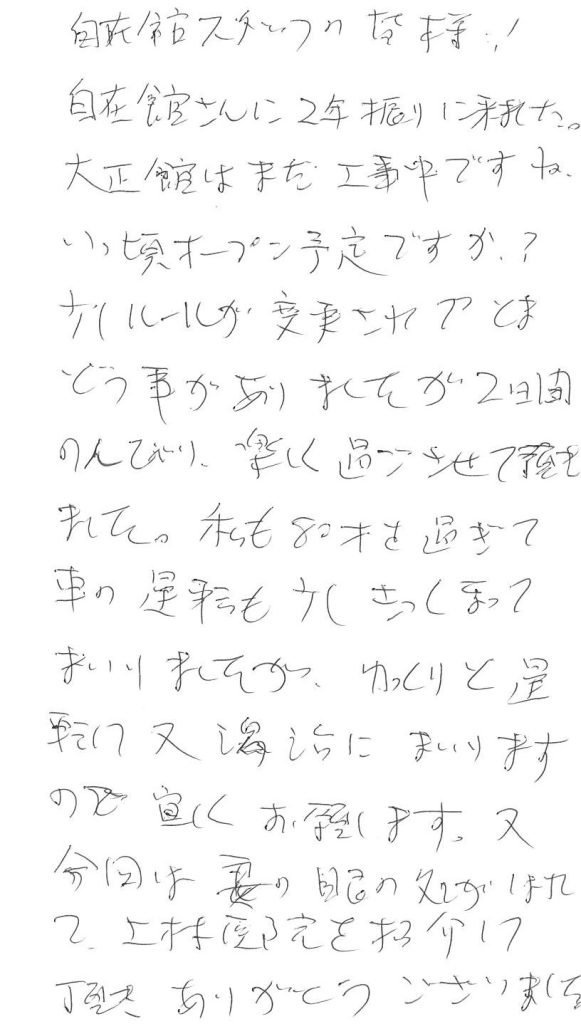 自在館スタッフの皆様!
自在館さんに2年振りに来れた。
大正館はまだ工事中ですね、
いつ頃オープン予定ですか?
少しルールが変更されてとま
どう事がありましたが2日間
のんびり、楽しく過ごさせて頂き
ました。私も80才を過ぎて
車の運転も少しきつくなって
まいりましたが、ゆっくりと運
転して又湯治にまいります
ので宜しくお願します。又
今回は妻の眼の処がはれ
て、上村医院を紹介して
頂きありがとうございました